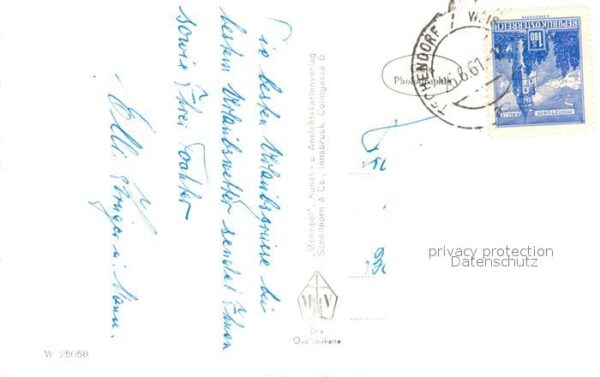 Die besten Urlaubsgrüsse bei
bestem Urlaubswetter sendet Ihnen
sowie Ihrer Tochter
Elli u. Mann.
"Monopol", Kunst- u. Ansichtskartenverlag
Schellhorn & Co., Innsbruck, Colingasse 6
Photographie
REPUBLIK ÖSTERREICH
1.80
CHENDORF
6.61
MV
Die
Qualitätskarte
privacy protection
Datenschutz
W 25058